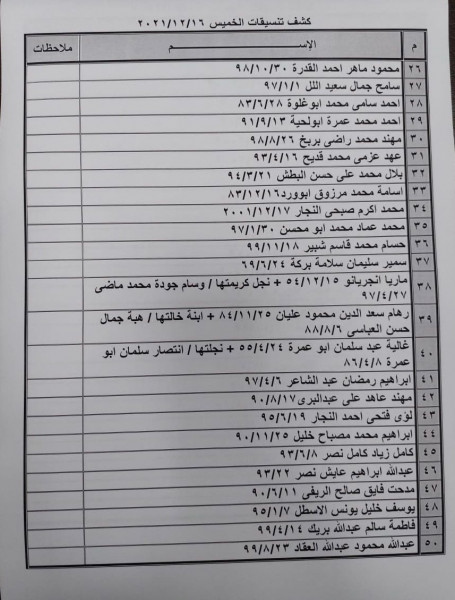 كشف تنسيقات الخميس ٢٠٢١/١٢/١٦
م الإســـــــــم ملاحظات
٢٦ محمود ماهر احمد القدرة ٩٨/١٠/٣٠
٢٧ سامح جمال سعيد اللل ٩٧/١/١
٢٨ احمد سامى محمد ابوغلوة ٨٣/٦/٢٨
٢٩ احمد محمد عمرة ابولحية ٩١/٩/١٣
٣٠ مهند محمد راضى بريخ ٩٨/٨/٢٦
٣١ عهد عزمى محمد قديح ٩٣/٤/١٦
٣٢ بلال محمد على حسن البطش ٩٤/٣/٢١
٣٣ اسامة محمد مرزوق ابوورد ٨٣/١٢/١٦
٣٤ محمد اكرم صبحى النجار ٢٠٠١/١٢/١٧
٣٥ محمد عماد محمد ابو محسن ٩٧/١/٣٠
٣٦ حسام محمد قاسم شبير ٩٩/١١/١٨
٣٧ سمير سليمان سلامة بركة ٦٩/٦/٢٤
٣٨ ماريا انجريانو ٥٤/١٢/١٥ + نجل كريمتها / وسام جودة محمد ماضى
٩٧/٤/٢٧
٣٩ رهام سعد الدين محمود عليان ٨٤/١١/٢٥ + ابنة خالتها / هبة جمال
حسن العباسى ٨٨/٨/٦
٤٠ غالية عبد سلمان ابو عمرة ٥٥/٤/٢٤ + نجلتها / انتصار سلمان ابو
عمرة ٨٦/٤/٨
٤١ ابراهيم رمضان عبد الشاعر ٩٧/٤/٦
٤٢ مهند عاهد على عبدالبرى ٩٠/٨/١٧
٤٣ لؤى فتحى احمد النجار ٩٥/٦/١٩
٤٤ ابراهيم محمد مصباح خليل ٩٠/١١/٢٥
٤٥ كامل زياد كامل نصر ٩٣/٦/٨
٤٦ عبدالله ابراهيم عايش نصر ٩٣/٢٢
٤٧ مدحت فايق صالح الريفى ٩٠/٦/١١
٤٨ يوسف خليل يونس الاسطل ٩٥/١/٧
٤٩ فاطمة سالم عبدالله بريك ٩٩/٤/١٤
٥٠ عبدالله محمود عبدالله العقاد ٩٩/٨/٢٣